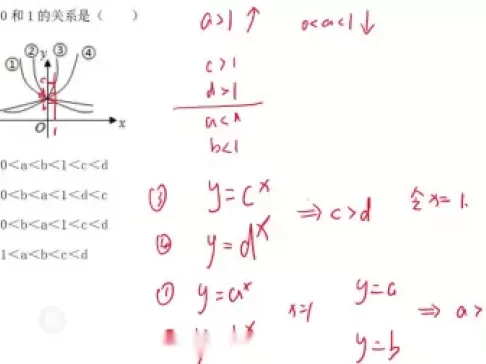 0 和 1 的关系是（    ）
① ② ③ ④
y
O
1
x
0<a<b<1<c<d
0<b<a<1<d<c
0<b<a<1<c<d
1<a<b<c<d
a>1 ↑ 0<a<1 ↓
c>1
d>1
a<x
b<1
③ y=cˣ
④ y=dˣ
⇒ c>d 令 x=1.
① y=aˣ
x=1
y=a
y=b
⇒ a>